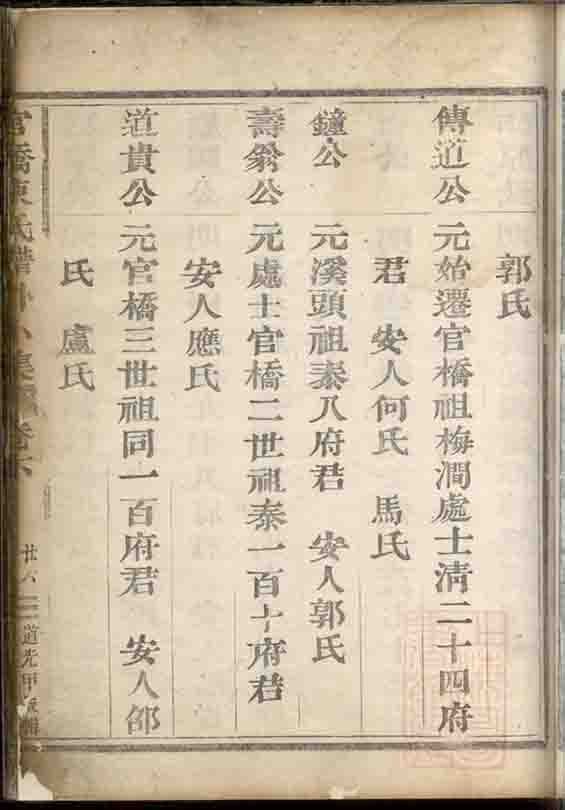 郭氏
傳道公 元始遷官橋祖梅澗處士淸二十四府
君 安人何氏 馬氏
鐘公 元溪頭祖泰八府君 安人郭氏
壽翁公 元處士官橋二世祖泰一百十府君
安人應氏
道貴公 元官橋三世祖同一百府君 安人邵
氏 盧氏
官橋東氏譜外
卷六
廿六
道光甲辰